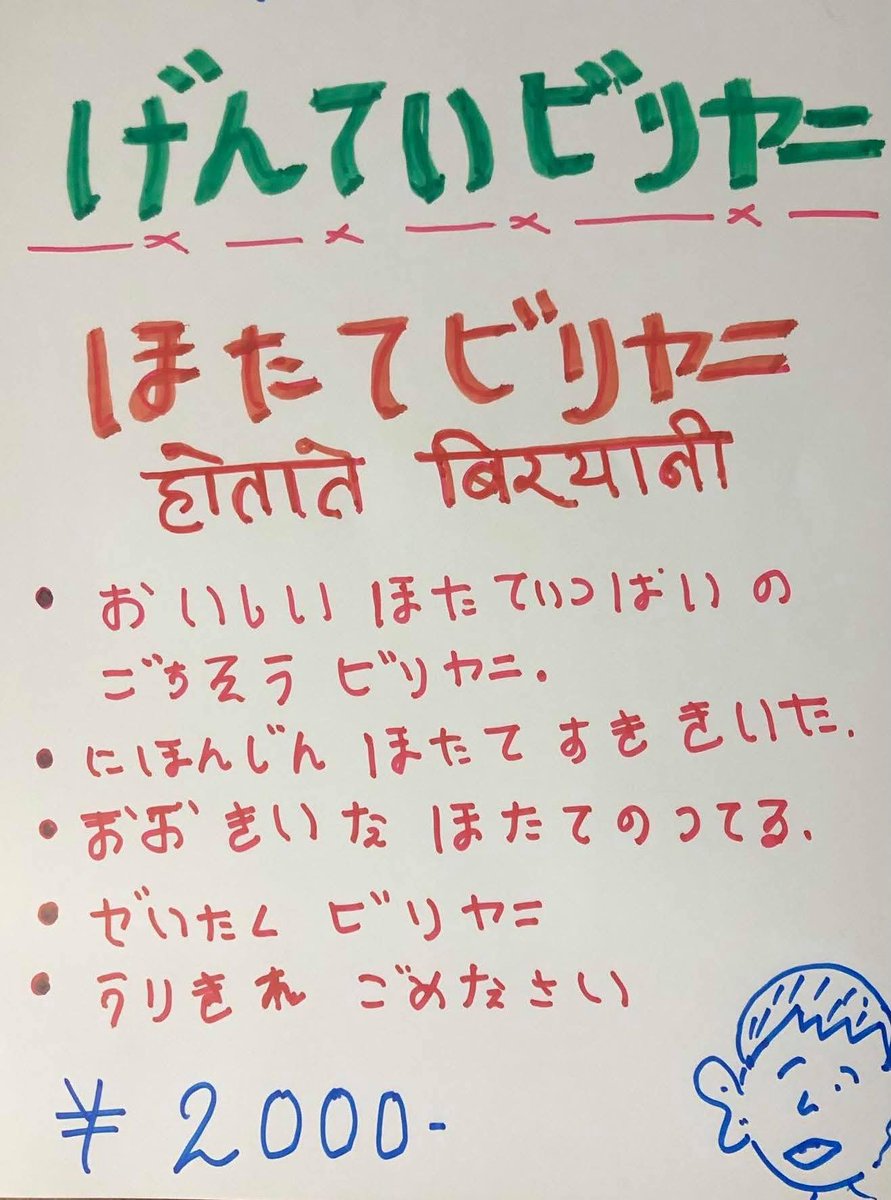 げんていビリヤニ
ほたてビリヤニ
होताते बिरयानी
• おいしい ほたていっぱいの
ごちそう ビリヤニ.
• にほんじん ほたて すき きいた.
• おおきいな ほたてのってる.
• ぜいたく ビリヤニ
• うりきれ ごめなさい
¥2000-